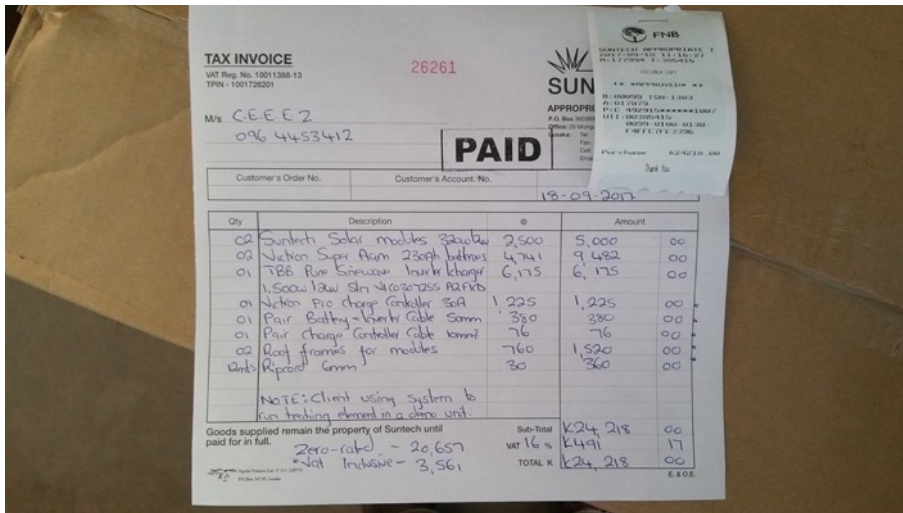 TAX INVOICE
VAT Reg. No. 10011388-13
TPIN - 1001728201
26261
SUN
APPROPRI
P.O. Box
Office: 25 Mung
Lusaka: Tel:
Fax:
Cell:
Email
FNB
SUNTECH APPROPRIATE T
2017-09-18 11:16:27
CUSTOMER COPY
Purchase K24218.00
Thank You
M/s C.E.E.E Z
096 4453412
PAID
Customer's Order No. Customer's Account. No.
18-09-2017
Qty Description @ Amount
02 Suntech Solar modules 320w 2,500 5,000 00
02 Victron Super AGM 230Ah batteries 4,741 9 482 00
01 TBB Pure Sinewave Inverter/charger 6,175 6,175 00
1,500w 12v
01 Victron Pro Charge Controller 30A 1,225 1,225 00
01 Pair Battery-Inverter Cable 50mm 380 380 00
01 Pair Charge Controller Cable 10mm² 76 76 00
02 Roof frames for modules 760 1,520 00
12mts Ripcord 6mm 30 360 00
NOTE: Client using System to
run heating element in a demo unit.
Goods supplied remain the property of Suntech until
paid for in full.
Sub-Total K24,218 00
Zero-rated - 20,657
VAT 16 % K491 17
*Vat Inclusive - 3,561
TOTAL K K24,218 00
E. & O.E.